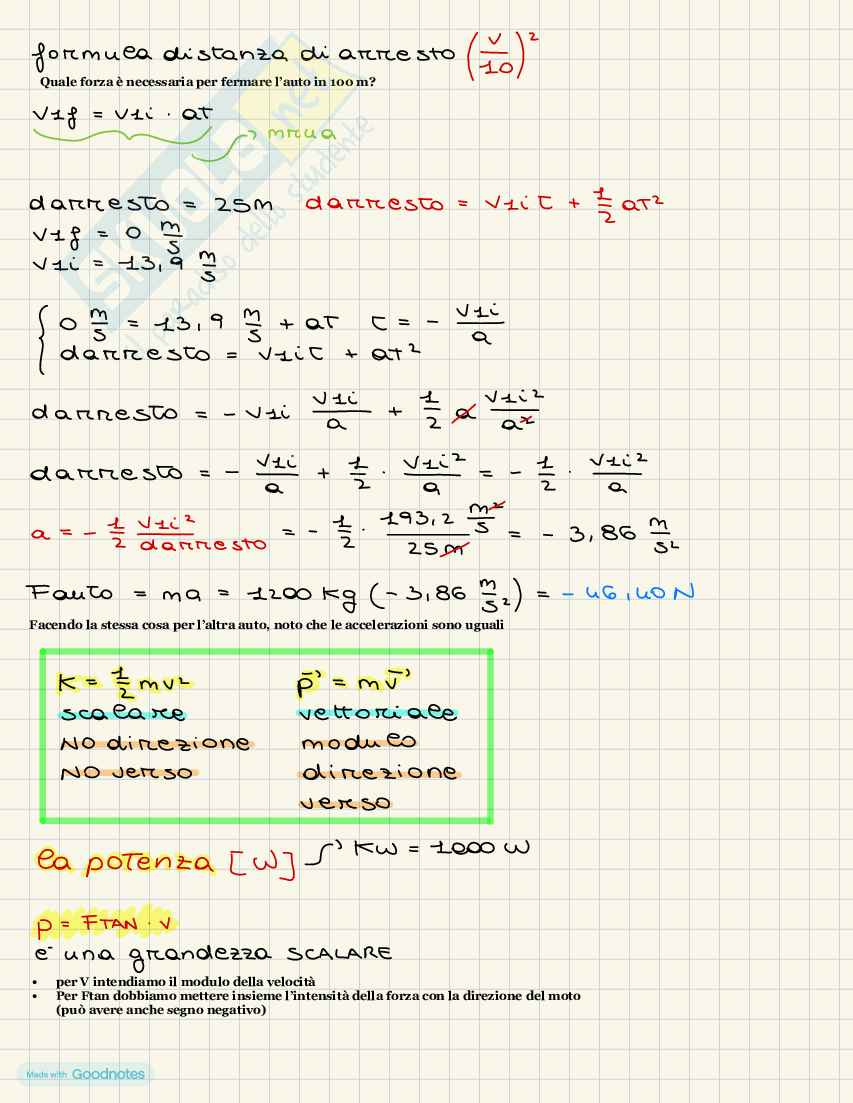 formula distanza di arresto (v/10)²
Quale forza è necessaria per fermare l'auto in 100 m?
v1f = v1i · at
mrua
darresto = 25m darresto = v1i t + 1/2 at²
v1f = 0 m/s
v1i = 13,9 m/s
0 m/s = 13,9 m/s + at t = - v1i/a
darresto = v1i t + at²
darresto = - v1i v1i/a + 1/2 a v1i²/a²
darresto = - v1i/a + 1/2 · v1i²/a = - 1/2 · v1i²/a
a = - 1/2 v1i²/darresto = - 1/2 · 193,2 m²/s / 25m = - 3,86 m/s²
Fauto = ma = 1200 kg (- 3,86 m/s²) = - 46,40 N
Facendo la stessa cosa per l'altra auto, noto che le accelerazioni sono uguali
K = 1/2 mv² p⃗ = mv⃗
scalare vettoriale
NO direzione modulo
NO verso direzione
verso
la potenza [W] KW = 1000 W
P = FTAN · V
e' una grandezza SCALARE
• per V intendiamo il modulo della velocità
• Per Ftan dobbiamo mettere insieme l'intensità della forza con la direzione del moto
(può avere anche segno negativo)
Made with Goodnotes
skuola.net
il paradiso dello studente